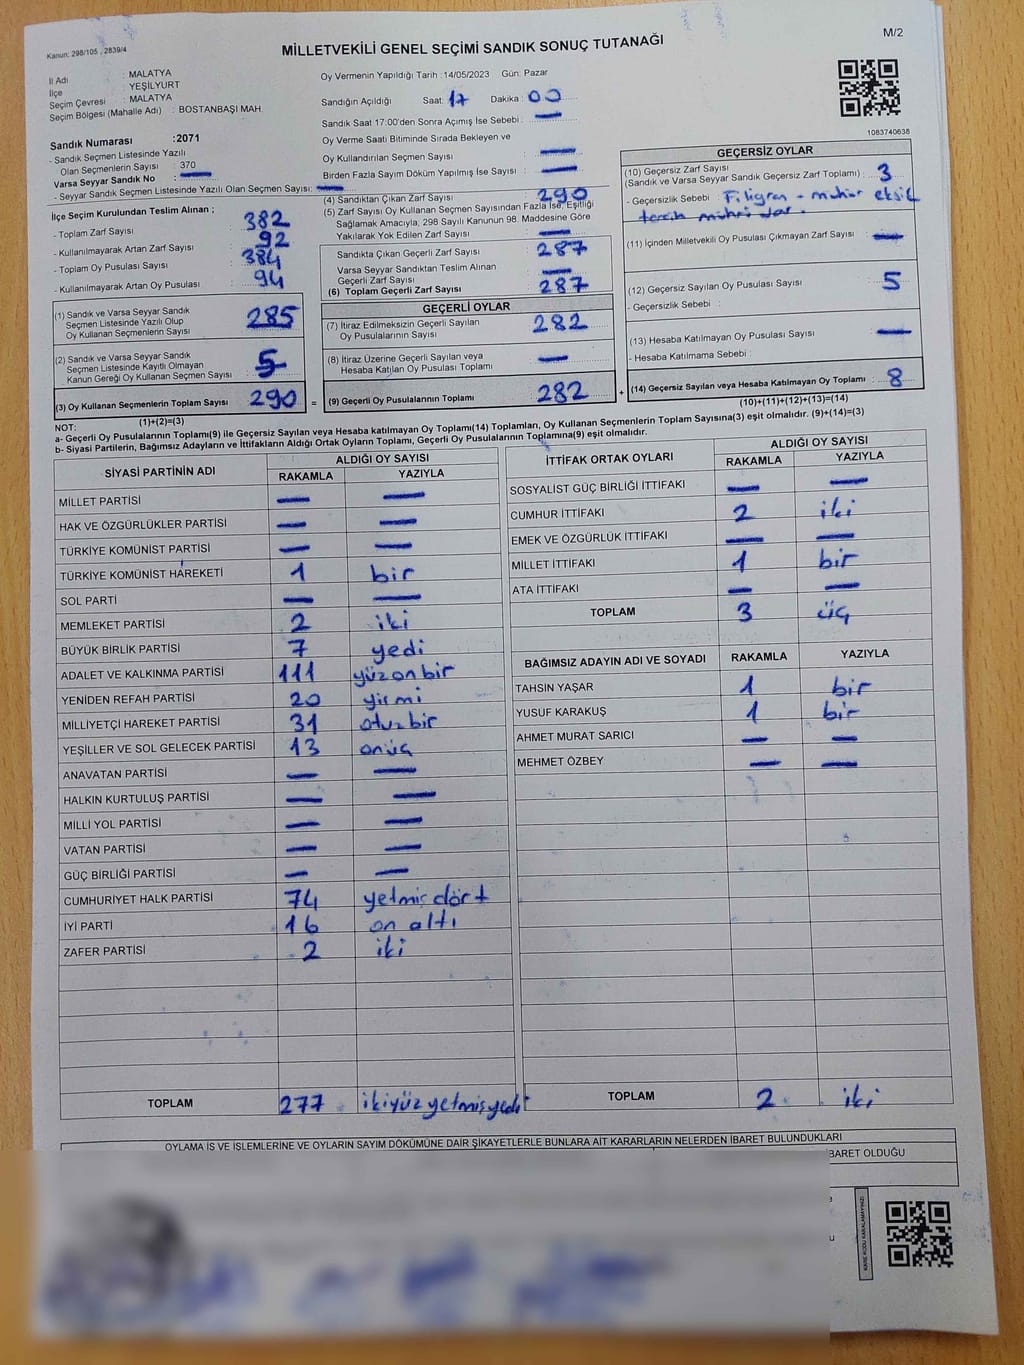 Kanun: 298/105 , 2839/4
MİLLETVEKİLİ GENEL SEÇİMİ SANDIK SONUÇ TUTANAĞI
M/2
İl Adı : MALATYA
İlçe : YEŞİLYURT
Seçim Çevresi : MALATYA
Seçim Bölgesi (Mahalle Adı) : BOSTANBAŞI MAH.
Sandık Numarası :2071
- Sandık Seçmen Listesinde Yazılı
Olan Seçmenlerin Sayısı : 370
Varsa Seyyar Sandık No : —
- Seyyar Sandık Seçmen Listesinde Yazılı Olan Seçmen Sayısı: —
İlçe Seçim Kurulundan Teslim Alınan ;
- Toplam Zarf Sayısı : 382
- Kullanılmayarak Artan Zarf Sayısı : 92
- Toplam Oy Pusulası Sayısı : 384
- Kullanılmayarak Artan Oy Pusulası : 94
(1) Sandık ve Varsa Seyyar Sandık
Seçmen Listesinde Yazılı Olup
Oy Kullanan Seçmenlerin Sayısı : 285
(2) Sandık ve Varsa Seyyar Sandık
Seçmen Listesinde Kayıtlı Olmayan
Kanun Gereği Oy Kullanan Seçmen Sayısı : 5
(3) Oy Kullanan Seçmenlerin Toplam Sayısı : 290
(1)+(2)=(3)
Oy Vermenin Yapıldığı Tarih :14/05/2023 Gün: Pazar
Sandığın Açıldığı Saat: 17 Dakika : 00
Sandık Saat 17:00'den Sonra Açımış İse Sebebi : —
Oy Verme Saati Bitiminde Sırada Bekleyen ve
Oy Kullandırılan Seçmen Sayısı : —
Birden Fazla Sayım Döküm Yapılmış İse Sayısı : —
(4) Sandıktan Çıkan Zarf Sayısı : 290
(5) Zarf Sayısı Oy Kullanan Seçmen Sayısından Fazla İse, Eşitliği
Sağlamak Amacıyla; 298 Sayılı Kanunun 98. Maddesine Göre
Yakılarak Yok Edilen Zarf Sayısı : —
Sandıkta Çıkan Geçerli Zarf Sayısı : 287
Varsa Seyyar Sandıktan Teslim Alınan
Geçerli Zarf Sayısı : —
(6) Toplam Geçerli Zarf Sayısı : 287
GEÇERLİ OYLAR
(7) İtiraz Edilmeksizin Geçerli Sayılan
Oy Pusulalarının Sayısı : 282
(8) İtiraz Üzerine Geçerli Sayılan veya
Hesaba Katılan Oy Pusulası Toplamı : —
= (9) Geçerli Oy Pusulalarının Toplamı : 282 +
1083740638
GEÇERSİZ OYLAR
(10) Geçersiz Zarf Sayısı
(Sandık ve Varsa Seyyar Sandık Geçersiz Zarf Toplamı) : 3
- Geçersizlik Sebebi : Filigran - mühür eksik
tercih mührü var.
(11) İçinden Milletvekili Oy Pusulası Çıkmayan Zarf Sayısı : —
(12) Geçersiz Sayılan Oy Pusulası Sayısı : 5
- Geçersizlik Sebebi :
(13) Hesaba Katılmayan Oy Pusulası Sayısı : —
- Hesaba Katılmama Sebebi :
(14) Geçersiz Sayılan veya Hesaba Katılmayan Oy Toplamı : 8
(10)+(11)+(12)+(13)=(14)
NOT:
a- Geçerli Oy Pusulalarının Toplamı(9) ile Geçersiz Sayılan veya Hesaba katılmayan Oy Toplamı(14) Toplamları, Oy Kullanan Seçmenlerin Toplam Sayısına(3) eşit olmalıdır. (9)+(14)=(3)
b- Siyasi Partilerin, Bağımsız Adayların ve İttifakların Aldığı Ortak Oyların Toplamı, Geçerli Oy Pusulalarının Toplamına(9) eşit olmalıdır.
SİYASİ PARTİNİN ADI ALDIĞI OY SAYISI
RAKAMLA YAZIYLA
MİLLET PARTİSİ — —
HAK VE ÖZGÜRLÜKLER PARTİSİ — —
TÜRKİYE KOMÜNİST PARTİSİ — —
TÜRKİYE KOMÜNİST HAREKETİ 1 bir
SOL PARTİ — —
MEMLEKET PARTİSİ 2 iki
BÜYÜK BİRLİK PARTİSİ 7 yedi
ADALET VE KALKINMA PARTİSİ 111 yüzonbir
YENİDEN REFAH PARTİSİ 20 yirmi
MİLLİYETÇİ HAREKET PARTİSİ 31 otuzbir
YEŞİLLER VE SOL GELECEK PARTİSİ 13 onüç
ANAVATAN PARTİSİ — —
HALKIN KURTULUŞ PARTİSİ — —
MİLLİ YOL PARTİSİ — —
VATAN PARTİSİ — —
GÜÇ BİRLİĞİ PARTİSİ — —
CUMHURİYET HALK PARTİSİ 74 yetmiş dört
İYİ PARTİ 16 on altı
ZAFER PARTİSİ 2 iki
TOPLAM 277 ikiyüz yetmişyedi
İTTİFAK ORTAK OYLARI ALDIĞI OY SAYISI
RAKAMLA YAZIYLA
SOSYALİST GÜÇ BİRLİĞİ İTTİFAKI — —
CUMHUR İTTİFAKI 2 iki
EMEK VE ÖZGÜRLÜK İTTİFAKI — —
MİLLET İTTİFAKI 1 bir
ATA İTTİFAKI — —
TOPLAM 3 üç
BAĞIMSIZ ADAYIN ADI VE SOYADI RAKAMLA YAZIYLA
TAHSİN YAŞAR 1 bir
YUSUF KARAKUŞ 1 bir
AHMET MURAT SARICI — —
MEHMET ÖZBEY — —
TOPLAM 2 iki
OYLAMA İŞ VE İŞLEMLERİNE VE OYLARIN SAYIM DÖKÜMÜNE DAİR ŞİKAYETLERLE BUNLARA AİT KARARLARIN NELERDEN İBARET BULUNDUKLARI
İBARET OLDUĞU
KARE KODU KARALAMAYINIZ!